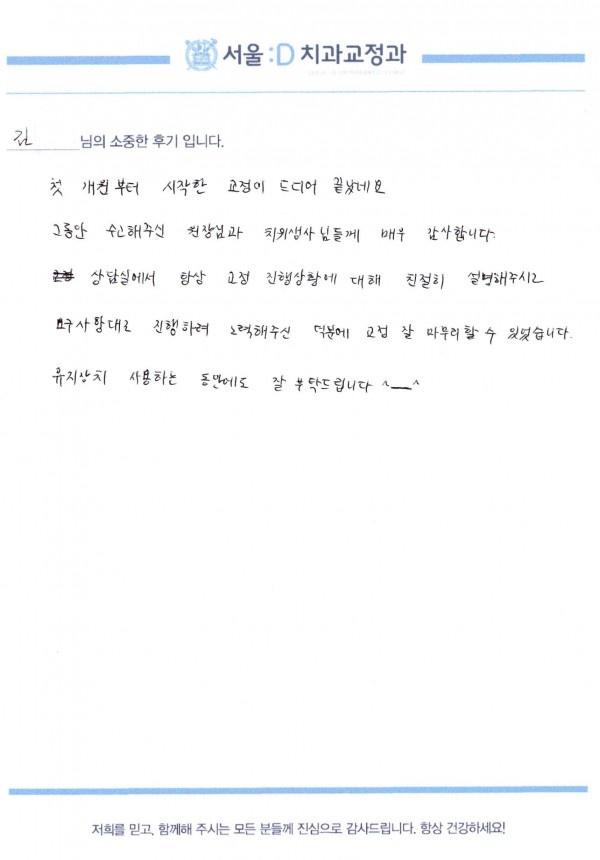 서울 :D 치과교정과
김 님의 소중한 후기 입니다.
첫 개원부터 시작한 교정이 드디어 끝났네요
그동안 수고해주신 원장님과 치위생사님들께 매우 감사합니다.
상담실에서 항상 교정 진행상황에 대해 친절히 설명해주시고
요구사항대로 진행하려 노력해주신 덕분에 교정 잘 마무리할 수 있었습니다.
유지장치 사용하는 동안에도 잘 부탁드립니다 ^__^
저희를 믿고, 함께해 주시는 모든 분들께 진심으로 감사드립니다. 항상 건강하세요!